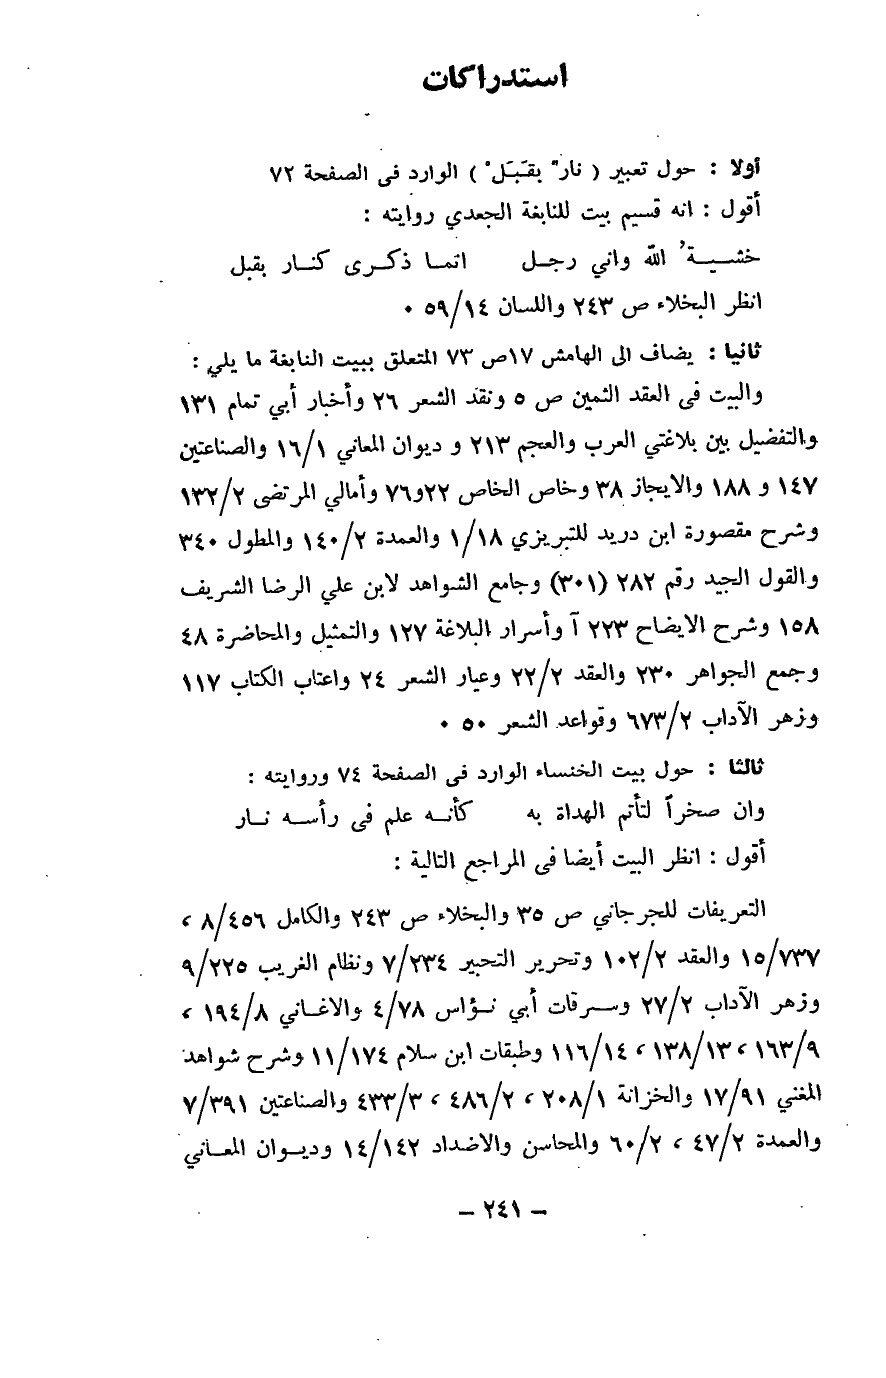 استدراكات
أولا : حول تعبير ( نار" بقَبَل" ) الوارد فى الصفحة ٧٢
أقول : انه قسيم بيت للنابغة الجعدي روايته :
خشيـــة ُ الله واني رجـل اتمـا ذكـرى كنـار بقبل
انظر البخلاء ص ٢٤٣ واللسان ٥٩/١٤ ٠
ثانيا : يضاف الى الهامش ١٧ص ٧٣ المتعلق ببيت النابغة ما يلي :
والبيت فى العقد الثمين ص ٥ ونقد الشعر ٢٦ وأخبار أبي تمام ١٣١
والتفضيل بين بلاغتي العرب والعجم ٢١٣ و ديوان المعاني ١٦/١ والصناعتين
١٤٧ و ١٨٨ والايجاز ٣٨ وخاص الخاص ٢٢و٧٦ وأمالي المرتضى ١٣٢/٢
وشرح مقصورة ابن دريد للتبريزي ١/١٨ والعمدة ١٤٠/٢ والمطول ٣٤٠
والقول الجيد رقم ٢٨٢ (٣٠١) وجامع الشواهد لابن علي الرضا الشريف
١٥٨ وشرح الايضاح ٢٢٣ آ وأسرار البلاغة ١٢٧ والتمثيل والمحاضرة ٤٨
وجمع الجواهر ٢٣٠ والعقد ٢٢/٢ وعيار الشعر ٢٤ واعتاب الكتاب ١١٧
وزهر الآداب ٦٧٣/٢ وقواعد الشعر ٥٠ ٠
ثالثا : حول بيت الخنساء الوارد فى الصفحة ٧٤ وروايته :
وان صخراً لتأتم الهداة به كأنـه علم فى رأسـه نـار
أقول : انظر البيت أيضا فى المراجع التالية :
التعريفات للجرجاني ص ٣٥ والبخلاء ص ٢٤٣ والكامل ٨/٤٥٦ ،
١٥/٧٣٧ والعقد ١٠٢/٢ وتحرير التحبير ٧/٢٣٤ ونظام الغريب ٩/٢٢٥
وزهر الآداب ٢٧/٢ وسـرقات أبي نـؤاس ٤/٧٨ والاغـاني ١٩٤/٨ ،
١٦٣/٩ ، ١٣٨/١٣ ، ١١٦/١٤ وطبقات ابن سلام ١١/١٧٤ وشرح شواهد
المغني ١٧/٩١ والخزانة ٢٠٨/١ ، ٤٨٦/٢ ، ٤٣٣/٣ والصناعتين ٧/٣٩١
والعمدة ٤٧/٢ ، ٦٠/٢ والمحاسن والاضداد ١٤/١٤٢ وديـوان المعـاني
– ٢٤١ –